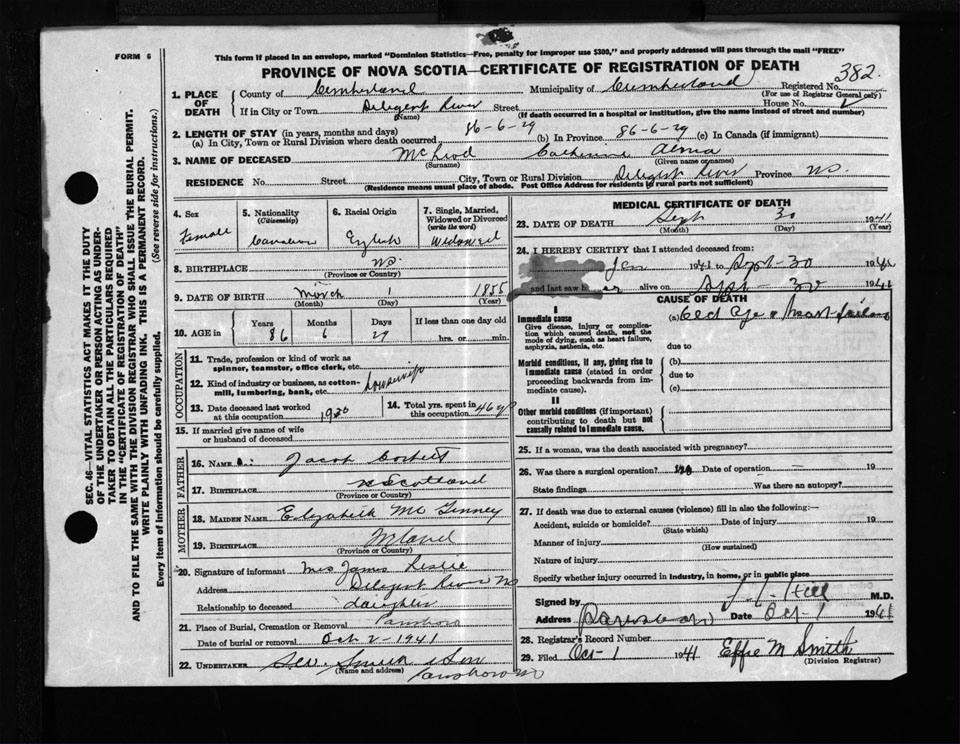 FORM 6
This form if placed in an envelope, marked "Dominion Statistics—Free, penalty for improper use $300," and properly addressed will pass through the mail "FREE"
PROVINCE OF NOVA SCOTIA—CERTIFICATE OF REGISTRATION OF DEATH
382.
1. PLACE OF DEATH
County of Cumberland Municipality of Cumberland Registered No.
(For use of Registrar General only)
If in City or Town Diligent River Street House No.
(Name) (If death occurred in a hospital or institution, give its name instead of street and number)
2. LENGTH OF STAY (in years, months and days)
(a) In City, Town or Rural Division where death occurred 86-6-29 (b) In Province 86-6-29 (c) In Canada (if immigrant)
3. NAME OF DECEASED McLeod Catherine Alma
(Surname) (Given name or names)
RESIDENCE No. Street City, Town or Rural Division Diligent River Province NS.
(Residence means usual place of abode. Post Office Address for residents in rural parts not sufficient)
4. Sex
Female
5. Nationality
(Citizenship)
Canadian
6. Racial Origin
English
7. Single, Married, Widowed or Divorced
(write the word)
Widowed
8. BIRTHPLACE NS.
(Province or Country)
9. DATE OF BIRTH March 1 1855
(Month) (Day) (Year)
10. AGE in
Years Months Days If less than one day old
86 6 29 hrs. or min.
OCCUPATION
11. Trade, profession or kind of work as spinner, teamster, office clerk, etc.
12. Kind of industry or business, as cotton-mill, lumbering, bank, etc. Housewife
13. Date deceased last worked at this occupation 1930
14. Total yrs. spent in this occupation 46 y
15. If married give name of wife or husband of deceased
FATHER
16. Name Jacob Corbett
17. BIRTHPLACE N Scotland
(Province or Country)
MOTHER
18. MAIDEN NAME Elizabeth McGinney
19. BIRTHPLACE
(Province or Country)
20. Signature of informant Mrs James Leslie
Address Diligent River NS
Relationship to deceased daughter
21. Place of Burial, Cremation or Removal Parrsboro
Date of burial or removal Oct 2 - 1941
22. UNDERTAKER Smith & Son
(Name and address)
Parrsboro NS
MEDICAL CERTIFICATE OF DEATH
23. DATE OF DEATH Sept 30 1941
(Month) (Day) (Year)
24. I HEREBY CERTIFY that I attended deceased from:
Jan 1941 to Sept-30 1941
and last saw her alive on Sept-30 1941
CAUSE OF DEATH
I
Immediate cause
Give disease, injury or complication which caused death, not the mode of dying, such as heart failure, asphyxia, asthenia, etc.
(a) Old Age & Heart failure
due to
Morbid conditions, if any, giving rise to immediate cause (stated in order proceeding backwards from immediate cause).
(b)
due to
(c)
II
Other morbid conditions (if important) contributing to death but not causally related to immediate cause.
25. If a woman, was the death associated with pregnancy?
26. Was there a surgical operation? no Date of operation 19
State findings Was there an autopsy?
27. If death was due to external causes (violence) fill in also the following:—
Accident, suicide or homicide? Date of injury 19
(State which)
Manner of injury
(How sustained)
Nature of injury
Specify whether injury occurred in industry, in home, or in public place
Signed by Hill M.D.
Address Parrsboro Date Oct-1 1941
28. Registrar's Record Number
29. Filed Oct-1 1941 Effie M Smith
(Division Registrar)
SEC. 46—VITAL STATISTICS ACT MAKES IT THE DUTY
OF THE UNDERTAKER OR PERSON ACTING AS UNDER-
TAKER TO OBTAIN ALL THE PARTICULARS REQUIRED
IN THE "CERTIFICATE OF REGISTRATION OF DEATH"
AND TO FILE THE SAME WITH THE DIVISION REGISTRAR WHO SHALL ISSUE THE BURIAL PERMIT.
WRITE PLAINLY WITH UNFADING INK. THIS IS A PERMANENT RECORD.
Every item of information should be carefully supplied. (See reverse side for instructions.)